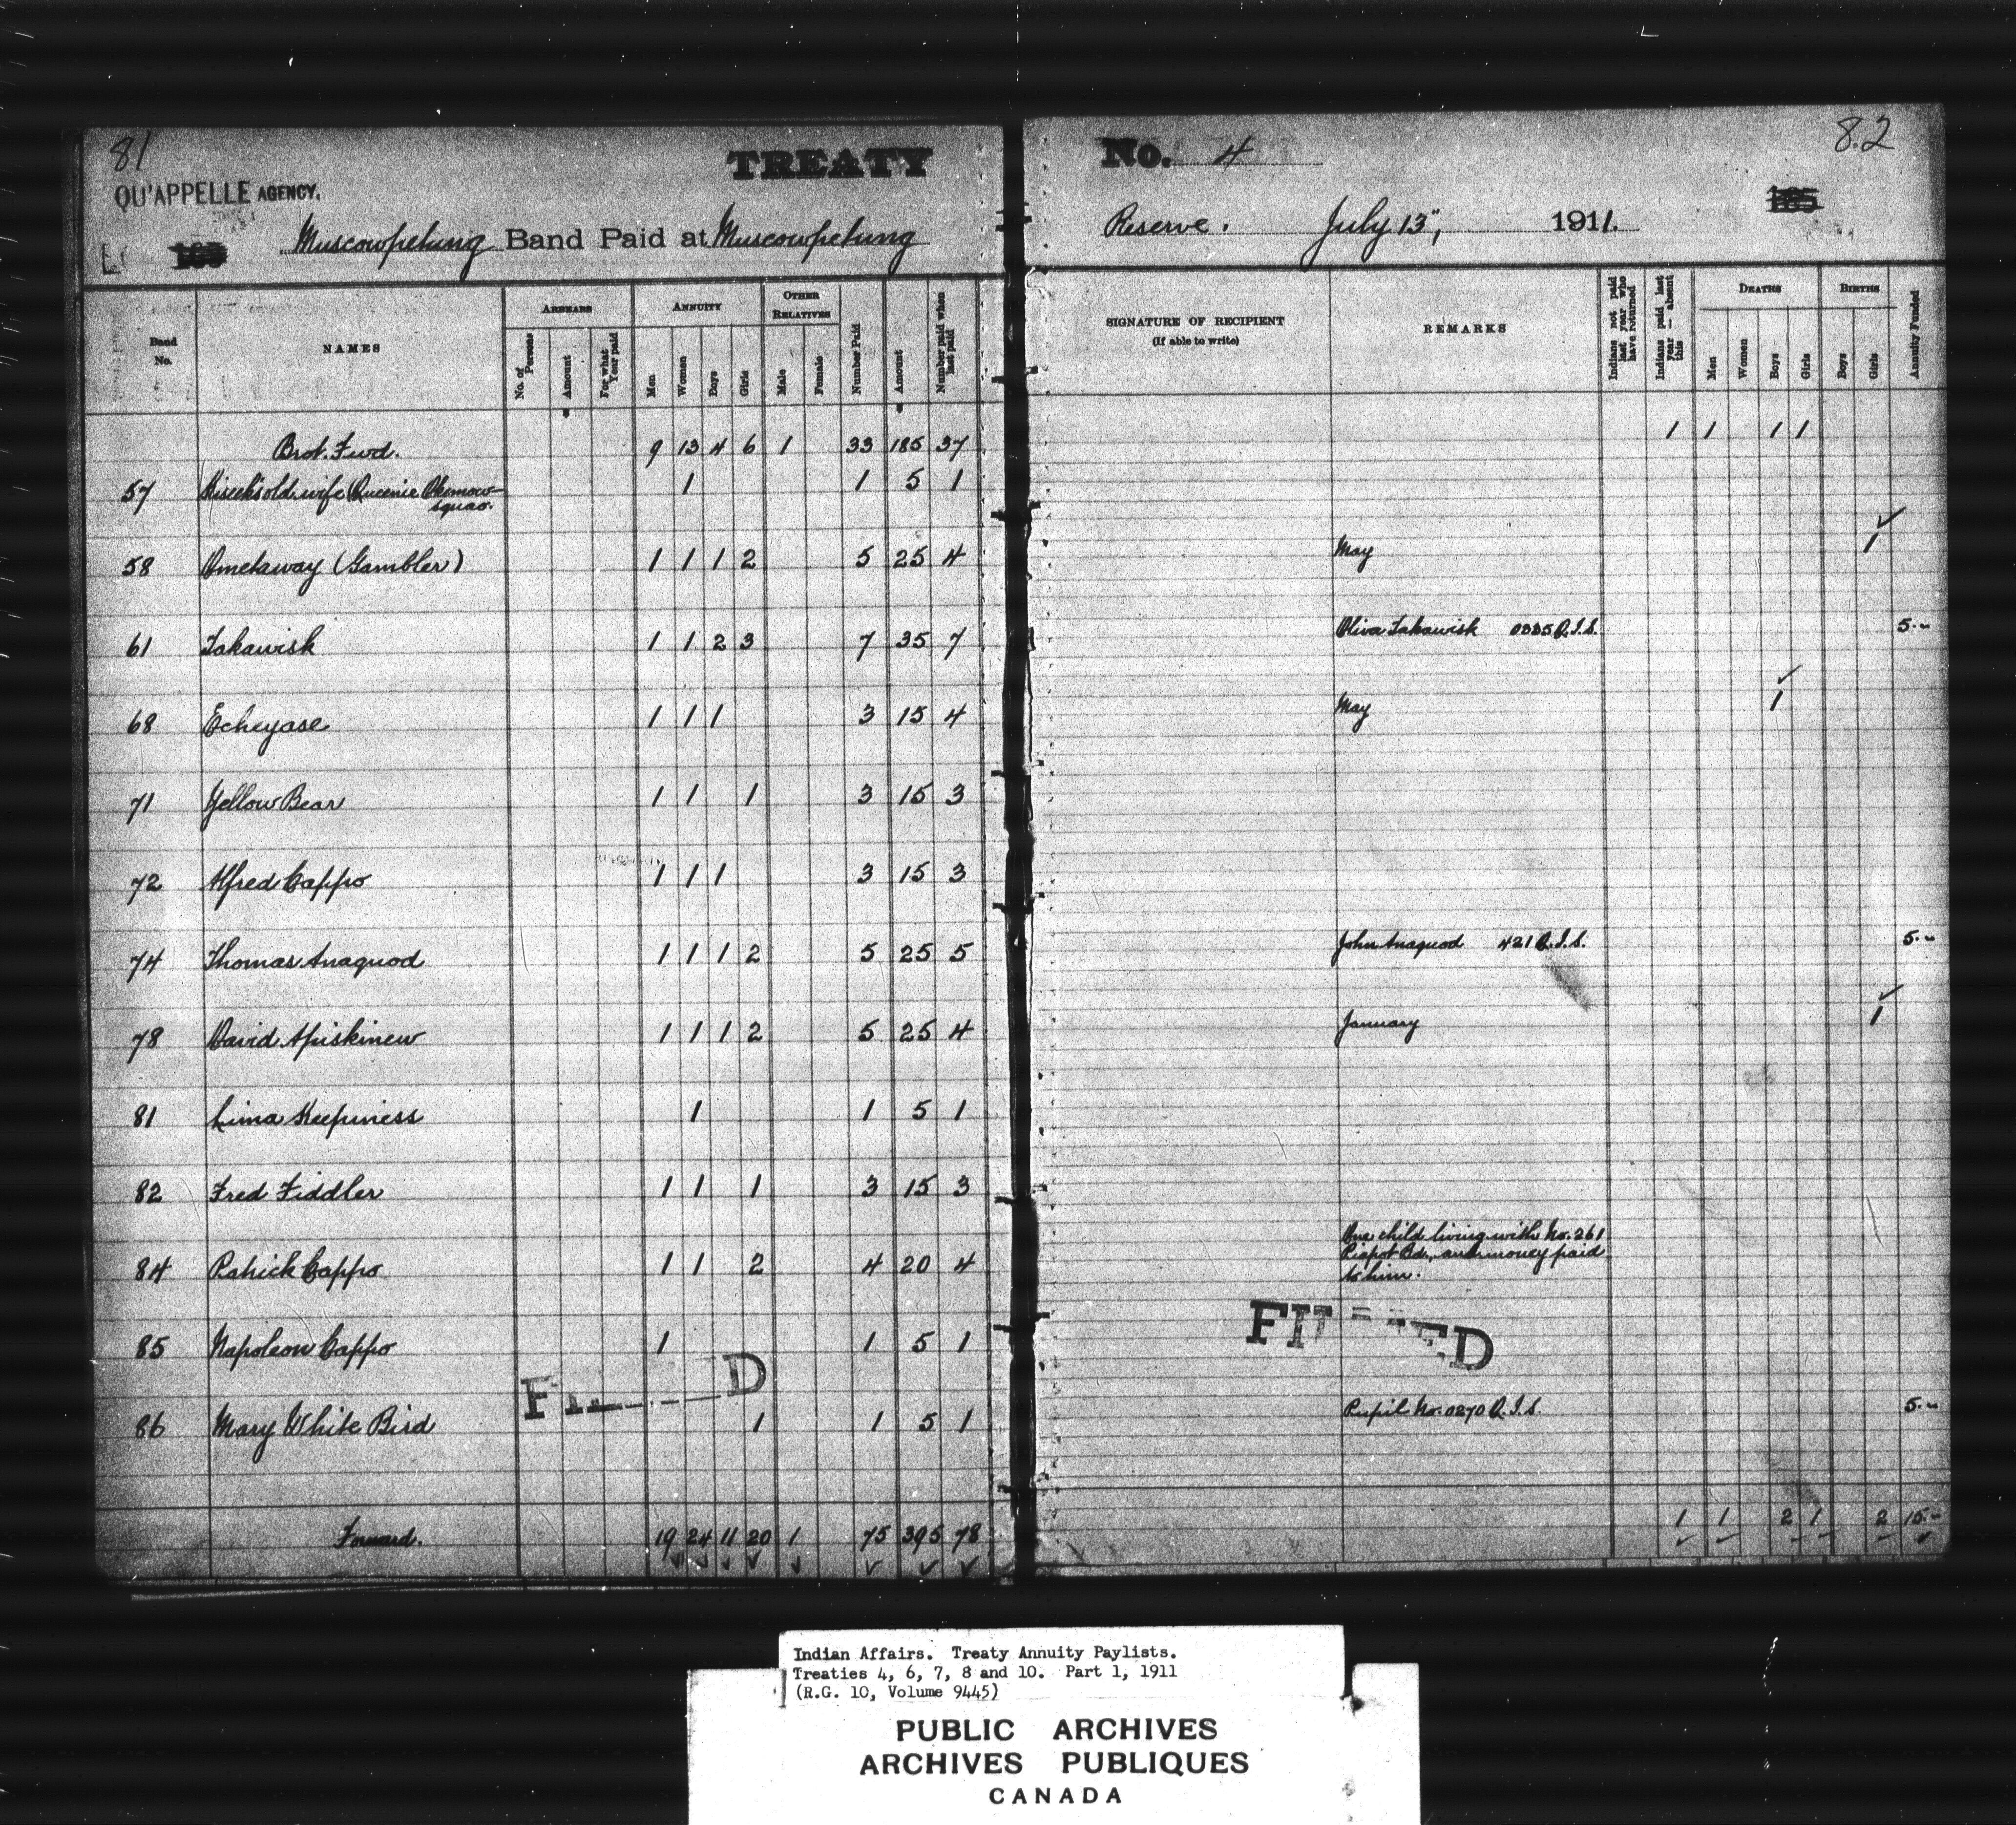 81
TREATY
No. 4
82
QU'APPELLE AGENCY.
165
165
Muscowpetung Band Paid at Muscowpetung
Reserve. July 13", 1911.
Band No.
NAMES
ARREARS
No. of Persons
Amount
For what Year paid
ANNUITY
Men
Women
Boys
Girls
OTHER RELATIVES
Male
Female
Number Paid
Amount
Number paid when last paid
SIGNATURE OF RECIPIENT
(If able to write)
REMARKS
Indians not paid last year who have returned
Indians paid last year — absent this
DEATHS
Men
Women
Boys
Girls
BIRTHS
Boys
Girls
Annuity Funded
Brot. Fwd. 9 13 4 6 1 33 185 37 1 1 1 1
57 Kiseek's old wife (Queenie Okemow- 1 1 5 1
squao.
58 Ometaway (Gambler) 1 1 1 2 5 25 4 May 1
61 Takawisk 1 1 2 3 7 35 7 Oliva Takawisk 0335 Q.I.S. 5.--
68 Echeyase 1 1 1 3 15 4 May 1
71 Yellow Bear 1 1 1 3 15 3
72 Alfred Cappo 1 1 1 3 15 3
74 Thomas Anaquod 1 1 1 2 5 25 5 John Anaquod 421 Q.I.S. 5.--
78 David Apiskinew 1 1 1 2 5 25 4 January 1
81 Lima Keepiness 1 1 5 1
82 Fred Fiddler 1 1 1 3 15 3
84 Patrick Cappo 1 1 2 4 20 4 One child living with No. 261
Piapot Bd., and money paid
to him.
85 Napoleon Cappo 1 1 5 1
86 Mary White Bird 1 1 5 1 Pupil No. 0270 Q.I.S. 5.--
Forward. 19 24 11 20 1 75 395 78 1 1 2 1 2 15.--
Indian Affairs. Treaty Annuity Paylists.
Treaties 4, 6, 7, 8 and 10. Part 1, 1911
(R.G. 10, Volume 9445)
PUBLIC ARCHIVES
ARCHIVES PUBLIQUES
CANADA